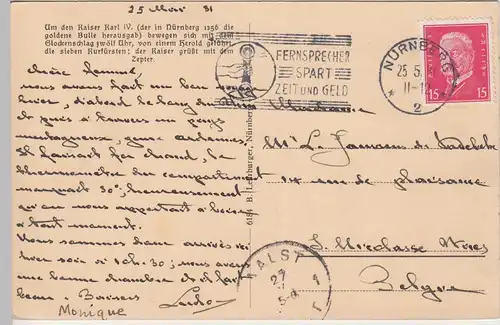 25 Mai 31
Um den Kaiser Karl IV. (der in Nürnberg 1356 die
goldene Bulle herausgab) bewegen sich mit dem
Glockenschlag zwölf Uhr, von einem Herold geführt
die sieben Kurfürsten: der Kaiser grüßt mit dem
Zepter.
FERNSPRECHER
SPART
ZEIT UND GELD
NÜRNBERG
25 5
11-12
2
15 15
nous avons fait un bon
hier, d'abord le long du Rhin
puis à travers un pays
montagneux, genre ardennes.
Il faisait fort chaud, le
thermomètre du compartiment
marquait 30°; heureusement
qu'on nous apportait à boire
à tout moment.
Nous sommes bien arrivés ici
hier soir à 5ch.30; nous avons
une bonne chambre et il fait
beau. Baisers
Monique
6184 B. Lehrburger, Nürnberg
Mme Le Janssens de
14 rue de plaisance
S. Nicolas Waes
Belgique
AALST
27
1